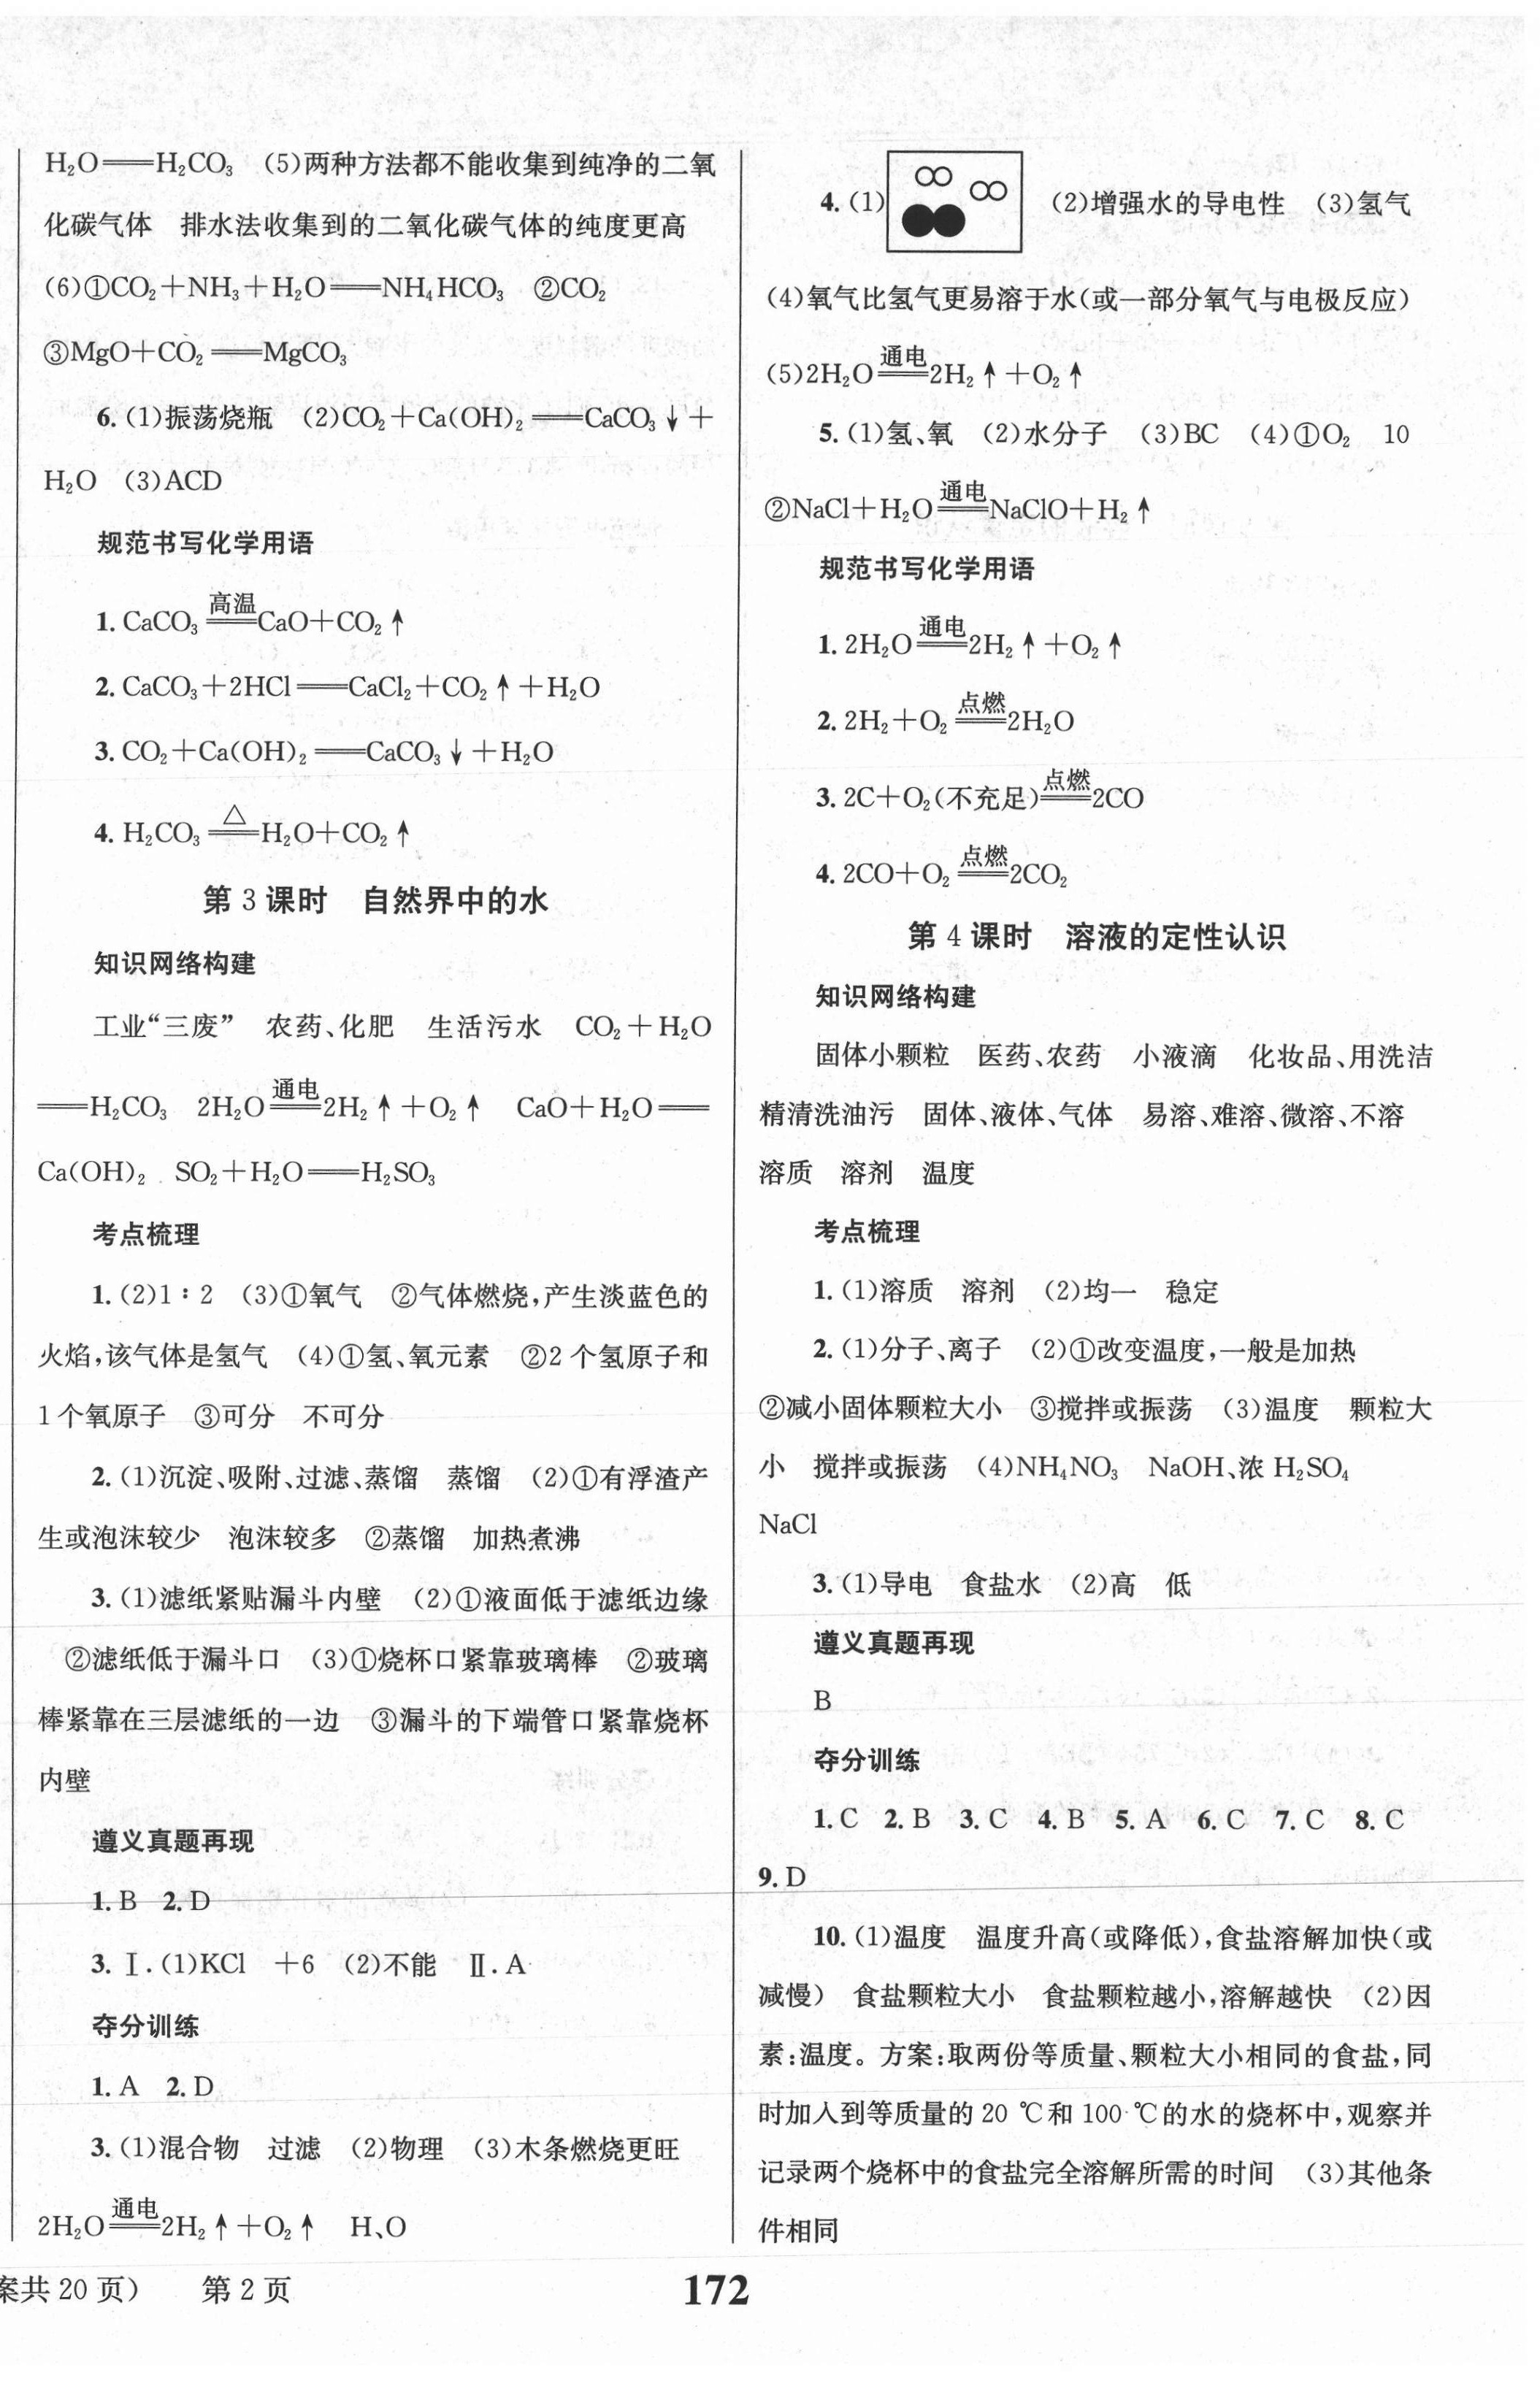 H₂O══H₂CO₃ (5)两种方法都不能收集到纯净的二氧
化碳气体 排水法收集到的二氧化碳气体的纯度更高
(6)①CO₂+NH₃+H₂O══NH₄HCO₃ ②CO₂
③MgO+CO₂══MgCO₃
6. (1)振荡烧瓶 (2)CO₂+Ca(OH)₂══CaCO₃↓+
H₂O (3)ACD
规范书写化学用语
高温
1. CaCO₃══CaO+CO₂↑
2. CaCO₃+2HCl══CaCl₂+CO₂↑+H₂O
3. CO₂+Ca(OH)₂══CaCO₃↓+H₂O
△
4. H₂CO₃══H₂O+CO₂↑
第 3 课时 自然界中的水
知识网络构建
工业“三废” 农药、化肥 生活污水 CO₂+H₂O
通电
══H₂CO₃ 2H₂O══2H₂↑+O₂↑ CaO+H₂O══
Ca(OH)₂ SO₂+H₂O══H₂SO₃
考点梳理
1. (2)1∶2 (3)①氧气 ②气体燃烧,产生淡蓝色的
火焰,该气体是氢气 (4)①氢、氧元素 ②2 个氢原子和
1 个氧原子 ③可分 不可分
2. (1)沉淀、吸附、过滤、蒸馏 蒸馏 (2)①有浮渣产
生或泡沫较少 泡沫较多 ②蒸馏 加热煮沸
3. (1)滤纸紧贴漏斗内壁 (2)①液面低于滤纸边缘
②滤纸低于漏斗口 (3)①烧杯口紧靠玻璃棒 ②玻璃
棒紧靠在三层滤纸的一边 ③漏斗的下端管口紧靠烧杯
内壁
遵义真题再现
1. B 2. D
3. Ⅰ. (1)KCl +6 (2)不能 Ⅱ. A
夺分训练
1. A 2. D
3. (1)混合物 过滤 (2)物理 (3)木条燃烧更旺
通电
2H₂O══2H₂↑+O₂↑ H、O
4. (1) (2)增强水的导电性 (3)氢气
(4)氧气比氢气更易溶于水(或一部分氧气与电极反应)
通电
(5)2H₂O══2H₂↑+O₂↑
5. (1)氢、氧 (2)水分子 (3)BC (4)①O₂ 10
通电
②NaCl+H₂O══NaClO+H₂↑
规范书写化学用语
通电
1. 2H₂O══2H₂↑+O₂↑
点燃
2. 2H₂+O₂══2H₂O
点燃
3. 2C+O₂(不充足)══2CO
点燃
4. 2CO+O₂══2CO₂
第 4 课时 溶液的定性认识
知识网络构建
固体小颗粒 医药、农药 小液滴 化妆品、用洗洁
精清洗油污 固体、液体、气体 易溶、难溶、微溶、不溶
溶质 溶剂 温度
考点梳理
1. (1)溶质 溶剂 (2)均一 稳定
2. (1)分子、离子 (2)①改变温度,一般是加热
②减小固体颗粒大小 ③搅拌或振荡 (3)温度 颗粒大
小 搅拌或振荡 (4)NH₄NO₃ NaOH、浓 H₂SO₄
NaCl
3. (1)导电 食盐水 (2)高 低
遵义真题再现
B
夺分训练
1. C 2. B 3. C 4. B 5. A 6. C 7. C 8. C
9. D
10. (1)温度 温度升高(或降低),食盐溶解加快(或
减慢) 食盐颗粒大小 食盐颗粒越小,溶解越快 (2)因
素:温度。方案:取两份等质量、颗粒大小相同的食盐,同
时加入到等质量的 20 ℃和 100 ℃的水的烧杯中,观察并
记录两个烧杯中的食盐完全溶解所需的时间 (3)其他条
件相同
案共 20 页) 第 2 页
172